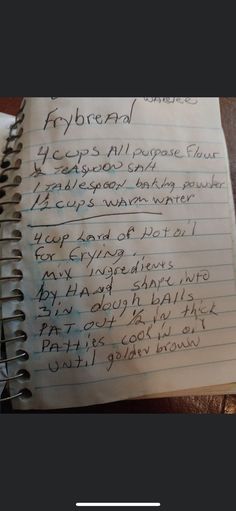 Frybread
4 cups All purpose Flour
½ Teaspoon Salt
1 Tablespoon baking powder
1½ cups warm water
4 cup Lard of Hot oil
for frying.
Mix ingredients
by Hand shape into
3in dough balls
PAT out ½ in thick
Patties cook in oil
until golden brown